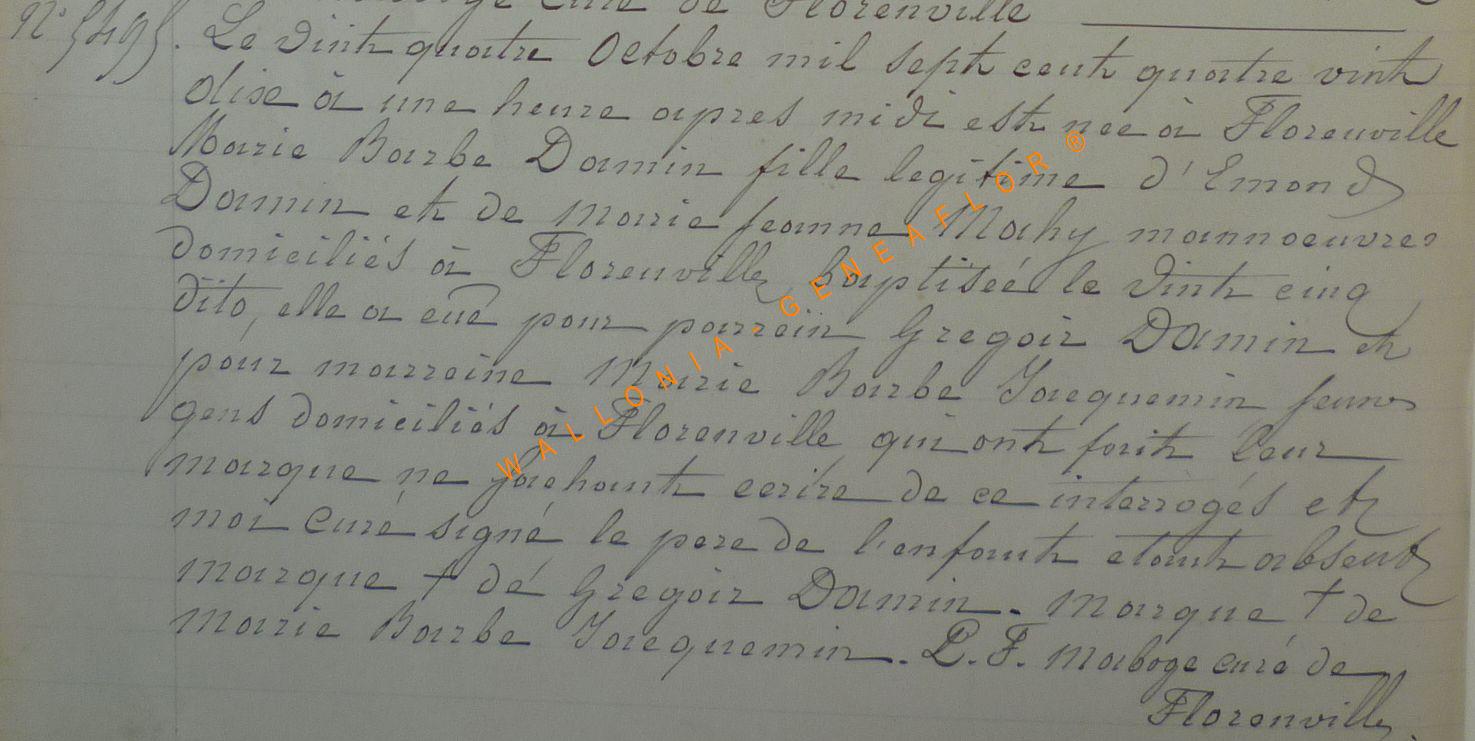 curé de Florenville
N° 5495. Le vint quatre Octobre mil sept cent quatre vint
dixe à une heure apres midi est nee à Florenville
Marie Barbe Damin fille legitime d'Emond
Damin et de Marie Jeanne Mahy mannoeuvres
domiciliés à Florenville, baptisée le vint cinq
dito, elle a eue pour parrein Gregoir Damin et
pour marreine Marie Barbe Jacquemin jeunes
gens domiciliés à Florenville qui ont fait leur
marque ne sachant ecrire de ce interrogés et
moi Curé signé le pere de l'enfant etant absent
marque + dé Gregoir Damin. Marque + de
Marie Barbe Jacquemin. P. F. Maboge curé de
Florenville.
WALLONIA - GENEAFLOR ®